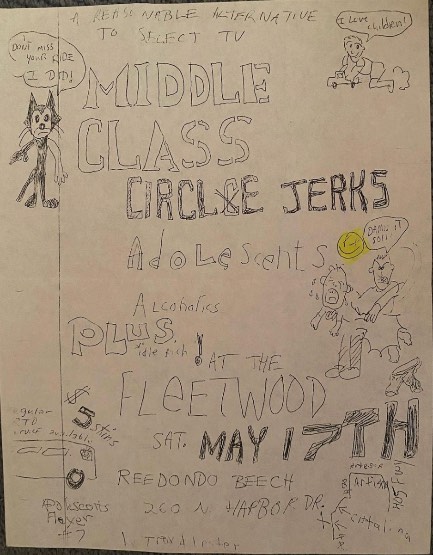 A REASONABLE ALTERNATIVE
TO SELECT TV
I DON'T MISS
YOUR RIDE
I DID!
I Love children!
MIDDLE
CLASS
CIRCLXE JERKS
AdoLescents
DAMN IT
Alcoholics
PLUS
idle rich !
AT THE
FLEETWOOD
$5
SAT. MAY 17TH
RTD
available
REEDONDO BEECH
200 N HARBOR DR.
Artesia
Catalina
Adolescents
Flayer
#7